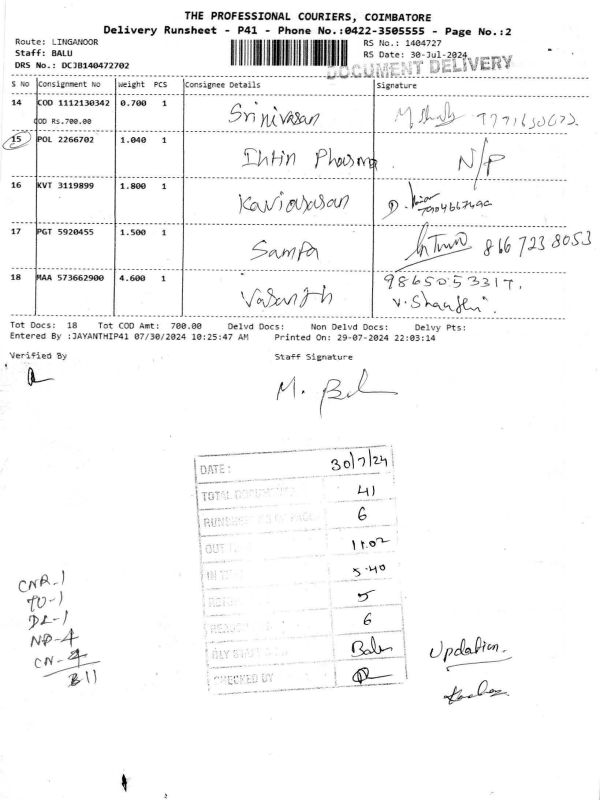 THE PROFESSIONAL COURIERS, COIMBATORE
Delivery Runsheet - P41 - Phone No.:0422-3505555 - Page No.:2
Route: LINGANOOR RS No.: 1404727
Staff: BALU RS Date: 30-Jul-2024
DRS No.: DCJB140472702 DOCUMENT DELIVERY
S No Consignment No Weight PCS Consignee Details Signature
14 COD 1112130342 0.700 1 Srinivasan
COD RS.700.00
15 POL 2266702 1.040 1 Ihtin Pharma N/P
16 KVT 3119899 1.800 1 Kaviarasan
17 PGT 5920455 1.500 1 Sampa 866 723 8053
18 MAA 573662900 4.600 1 Vasanth 9865053317.
V. Shanthi
Tot Docs: 18 Tot COD Amt: 700.00 Delvd Docs: Non Delvd Docs: Delvy Pts:
Entered By :JAYANTHIP41 07/30/2024 10:25:47 AM Printed On: 29-07-2024 22:03:14
Verified By Staff Signature
M. Bal
DATE: 30/7/24
TOTAL DOCUMENTS 41
RUNSHEET NO OF PAGE 6
OUT 11.02
IN TIME 5.40
5
6
DLY STAFF Balu
CHECKED BY
CNR-1
TO-1
DL-1
NP-4
CN-4
11
Updation.